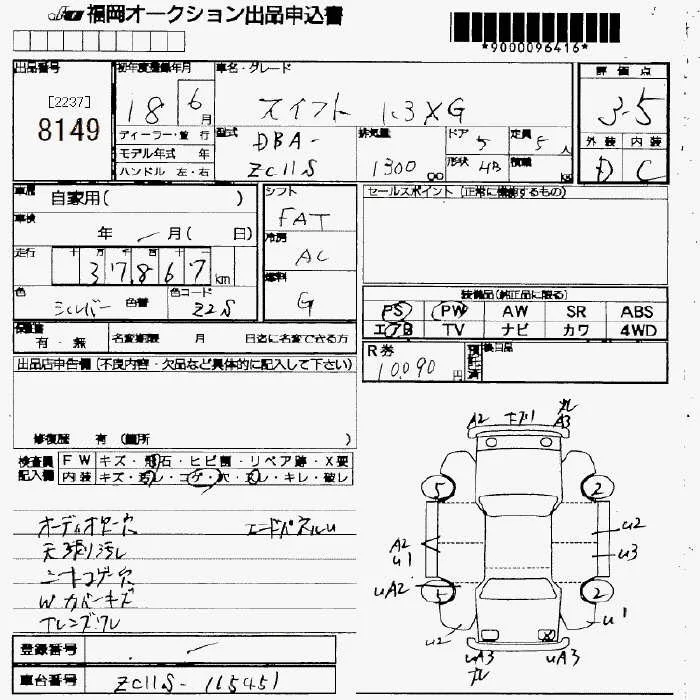 福岡オークション出品申込書
*9000096416*
出品番号
[2237]
8149
初年度登録年月
18 6月
ディーラー・並行
モデル年式 年
ハンドル 左・右
車名・グレード
スイフト 1.3XG
型式
DBA-
ZC11S
排気量
1300 cc
ドア
5
形状
4B
定員
5人
積載
kg
評価点
3.5
外装 内装
D C
車歴
自家用( )
車検
年 月( 日)
走行
十 万 千 百 十
37867 km
色
シルバー 色替
色コード
Z2S
シフト
FAT
冷房
AC
燃料
G
セールスポイント (正常に機能するもの)
装備品(純正品に限る)
PS PW AW SR ABS
エアB TV ナビ カワ 4WD
保証書
有・無
名変期限 月 日迄に名変できる方
R券
10090円
預託済
後日品
出品店申告欄 (不良内容・欠品など具体的に記入して下さい)
修復歴 有 (箇所 )
検査員記入欄
FW キズ・飛石・ヒビ割・リペア跡・X要
内装 キズ・汚レ・コゲ・穴・スレ・キレ・破レ
天張り汚レ
エンドパネルu
シートコゲ穴
Wカバーキズ
A2 A3
5 2
A2
u1
u2
u3
uA2
5 2
u2 u1
uA3 uA3
登録番号
車台番号
ZC11S-165451